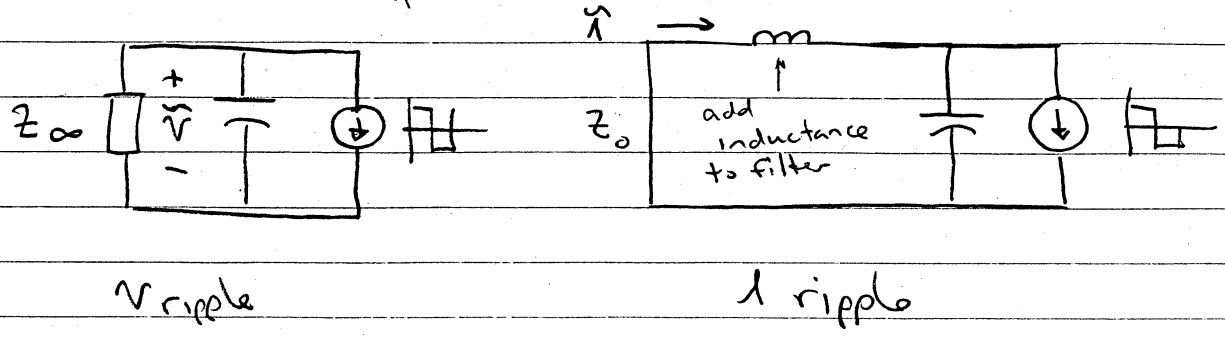 ĩ
+
Z∞ ṽ
-
Z₀
add
inductance
to filter
V ripple
i ripple